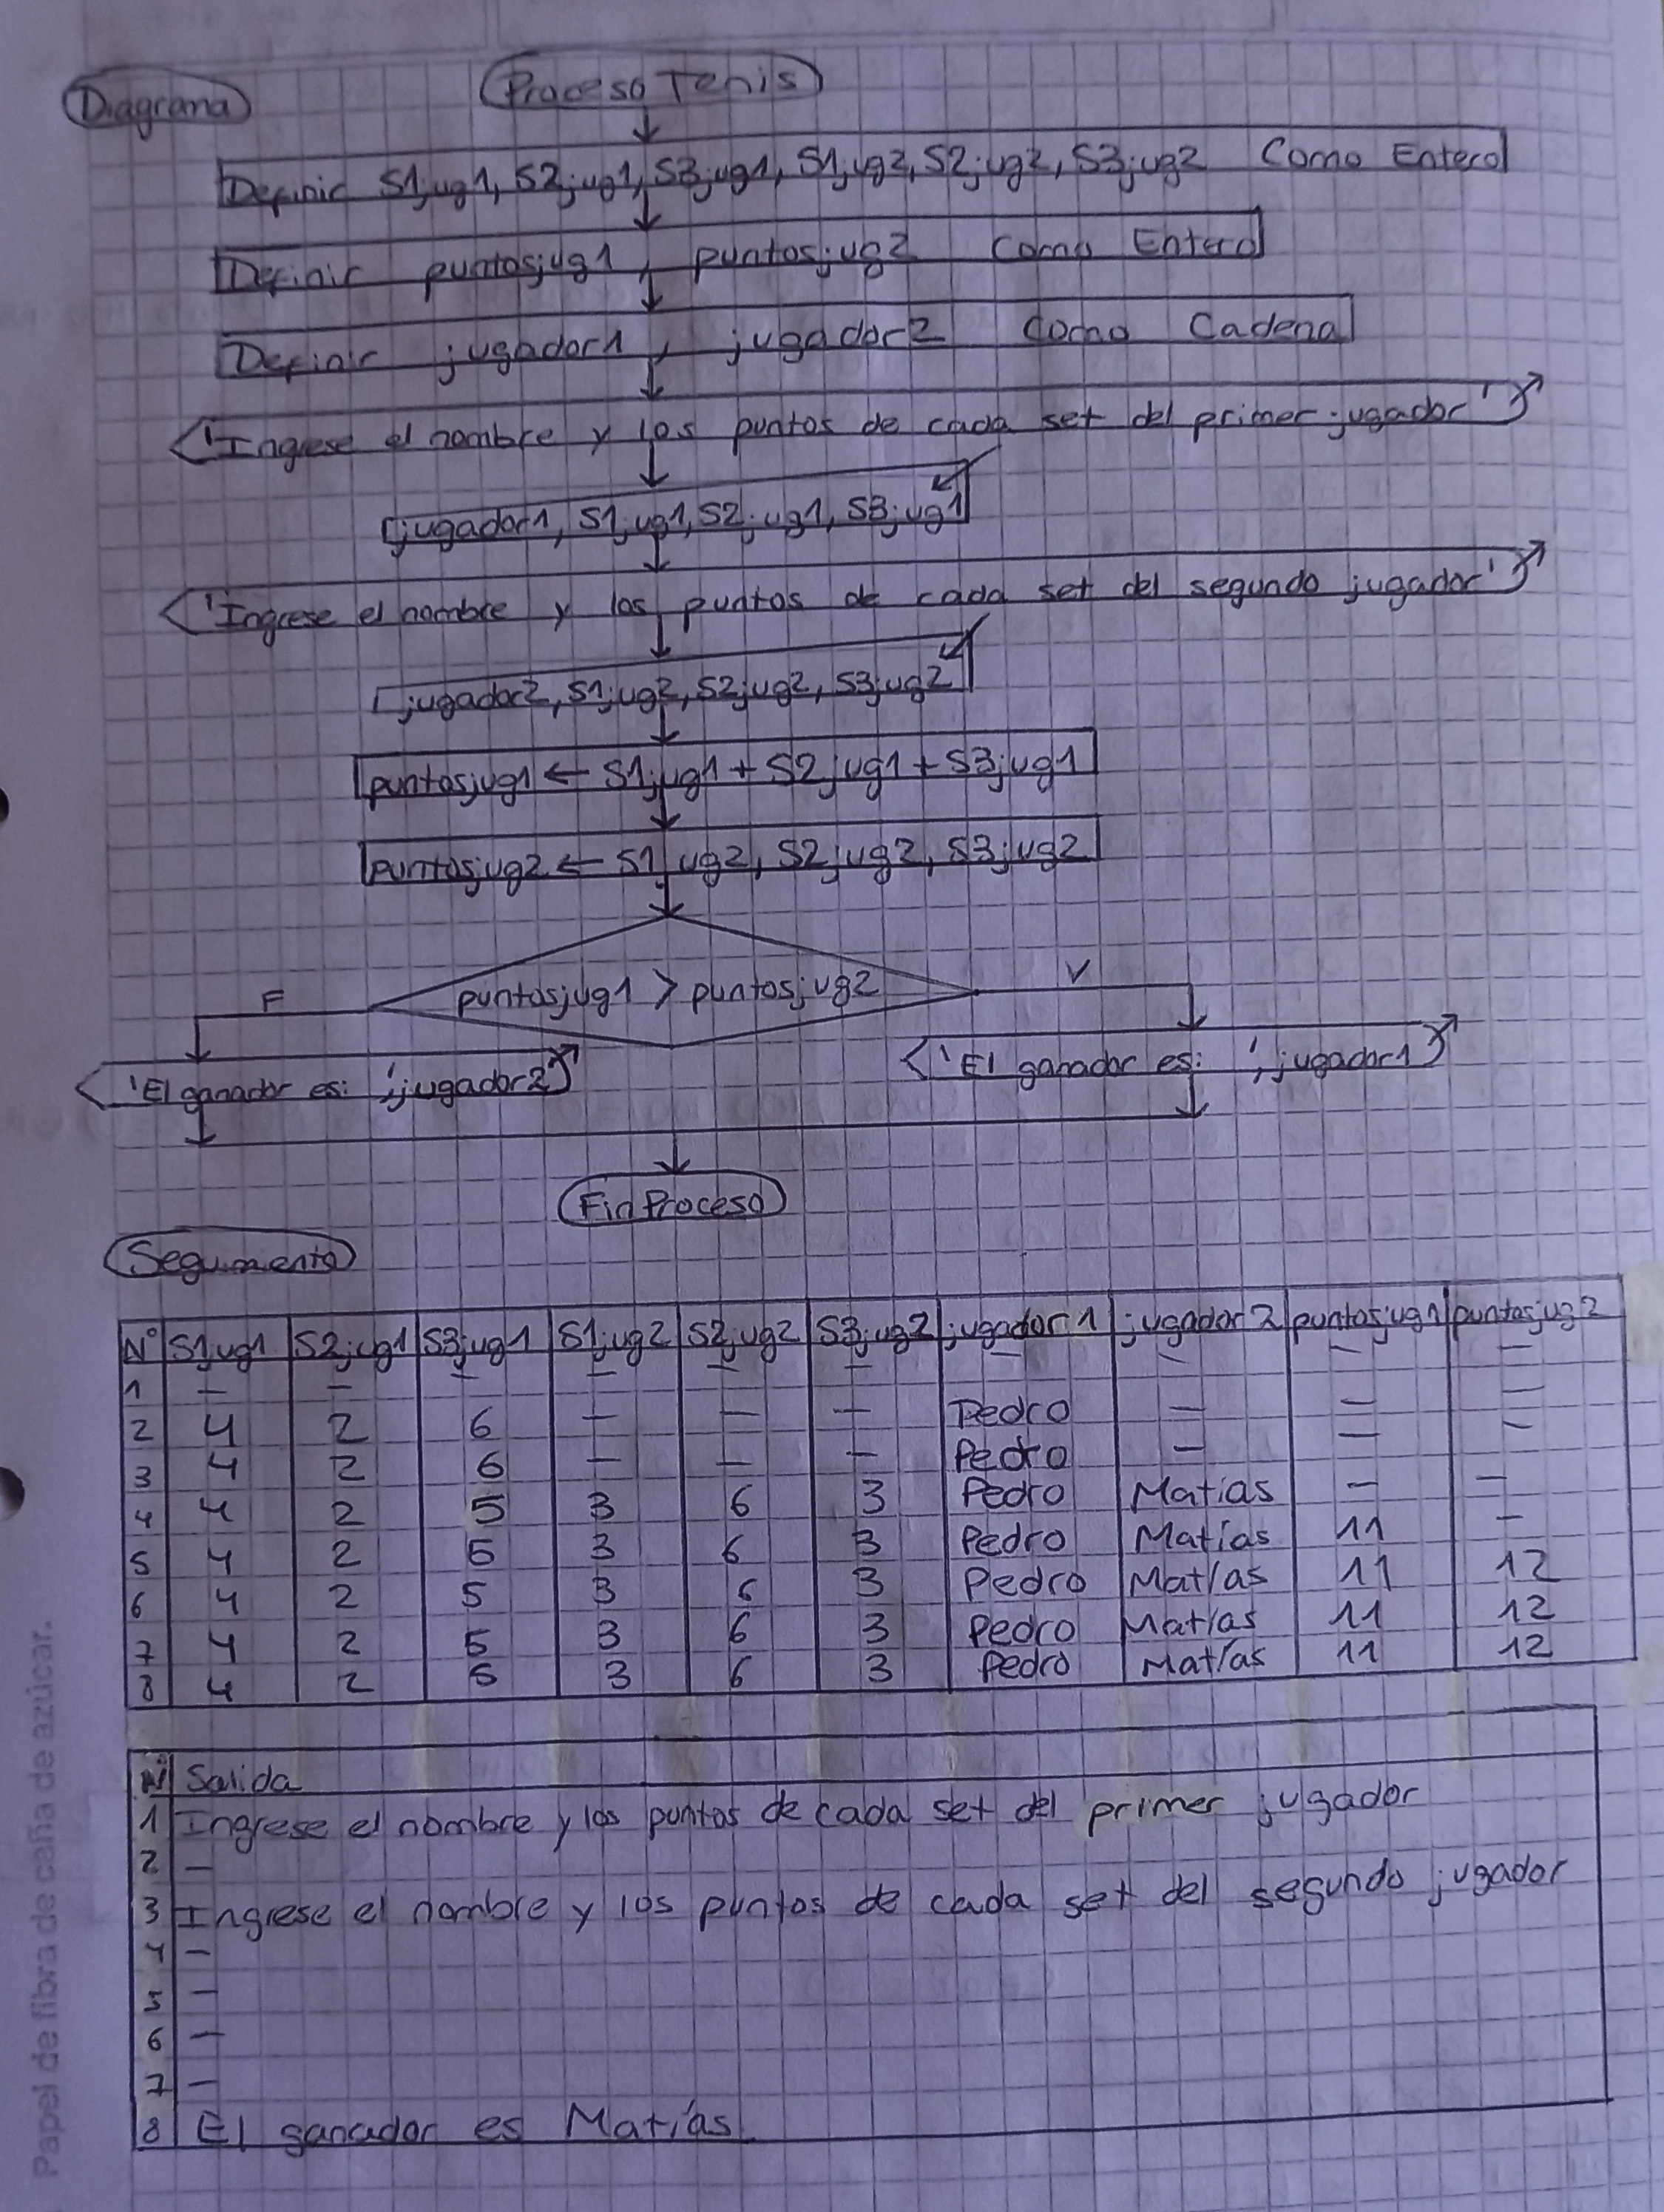 Diagrama
Proceso Tenis
Definir S1jug1, S2jug1, S3jug1, S1jug2, S2jug2, S3jug2 Como Entero
Definir puntosjug1, puntosjug2 Como Entero
Definir jugador1, jugador2 Como Cadena
'Ingrese el nombre y los puntos de cada set del primer jugador'
jugador1, S1jug1, S2jug1, S3jug1
'Ingrese el nombre y los puntos de cada set del segundo jugador'
jugador2, S1jug2, S2jug2, S3jug2
puntosjug1 ← S1jug1 + S2jug1 + S3jug1
puntosjug2 ← S1jug2, S2jug2, S3jug2
puntosjug1 > puntosjug2
F
V
'El ganador es: ', jugador2
'El ganador es: ', jugador1
FinProceso
Seguimiento
N° S1jug1 S2jug1 S3jug1 S1jug2 S2jug2 S3jug2 jugador1 jugador2 puntosjug1 puntosjug2
1 – – – – – – – – – –
2 4 2 6 – – – Pedro – – –
3 4 2 6 – – – Pedro – – –
4 4 2 5 3 6 3 Pedro Matías – –
5 4 2 5 3 6 3 Pedro Matías 11 –
6 4 2 5 3 6 3 Pedro Matías 11 12
7 4 2 5 3 6 3 Pedro Matías 11 12
8 4 2 5 3 6 3 Pedro Matías 11 12
N° Salida
1 Ingrese el nombre y los puntos de cada set del primer jugador
2 –
3 Ingrese el nombre y los puntos de cada set del segundo jugador
4 –
5 –
6 –
7 –
8 El ganador es Matías.
Papel de fibra de caña de azúcar.